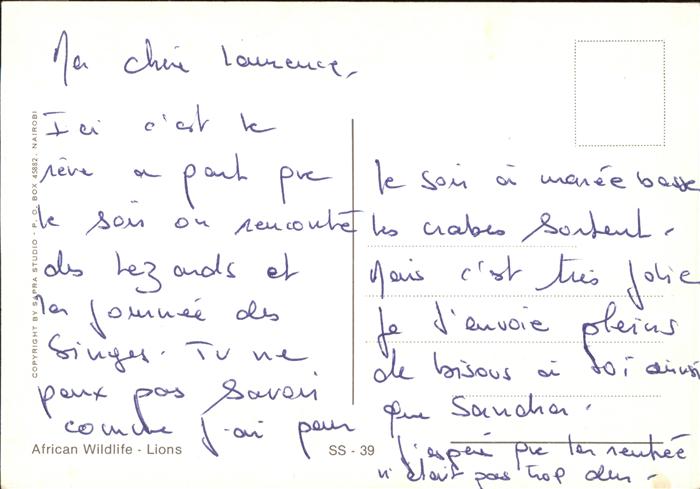 Ma chère Laurence,
Ici c'est le
rêve a part que
le soir on rencontre
des Lezards et
la journée des
Singes. Tu ne
peux pas Savoir
comme j'ai peur
le soir à marée basse
les crabes Sortent.
Mais c'est très jolie
Je t'envoie pleins
de bisous à toi ainsi
que Sandra.
J'espère que ta rentrée
n'était pas trop dur.
African Wildlife - Lions
SS - 39
COPYRIGHT BY SAPRA STUDIO - P. O. BOX 45882, NAIROBI